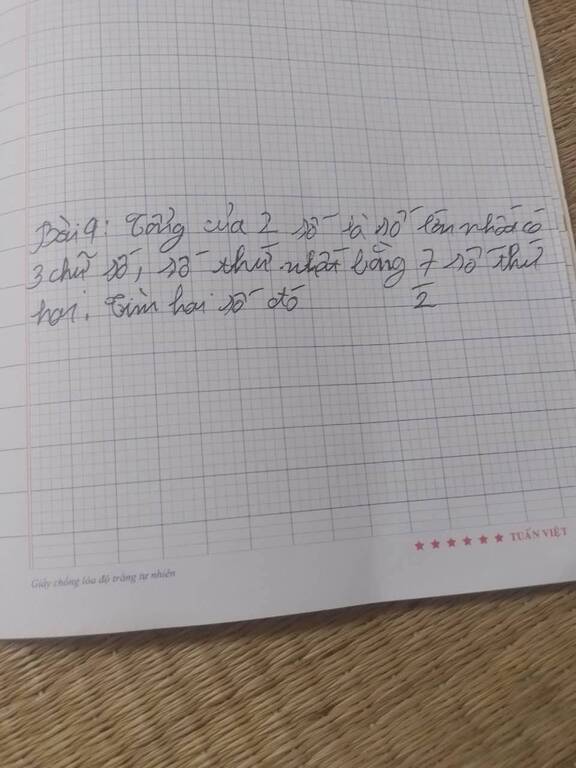 Bài 9: Tổng của 2 số là số lớn nhất có
3 chữ số, số thứ nhất bằng 7/2 số thứ
hai. Tìm hai số đó
★ ★ ★ ★ ★ ★ TUẤN VIỆT
Giấy chống lóa độ trắng tự nhiên